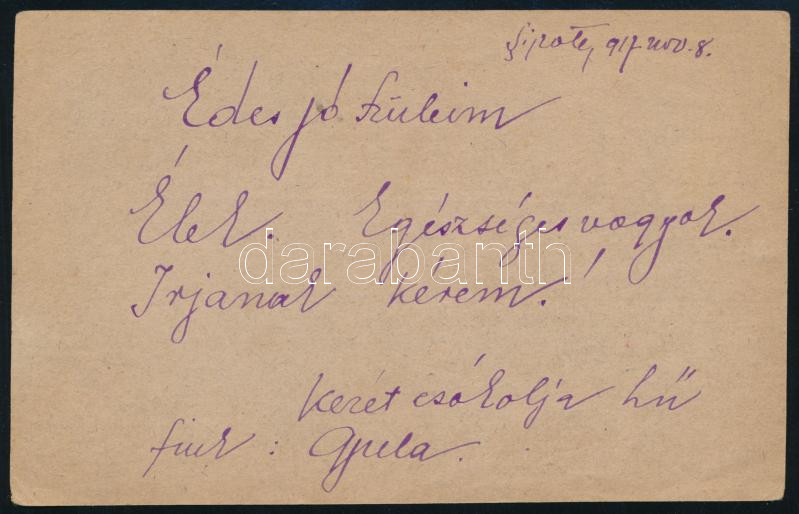 917 nov. 8.
Édes jó szüleim
Élek. Egészséges vagyok.
darabanth
Irjanak kérem!
Kezét csókolja hű
fiuk :